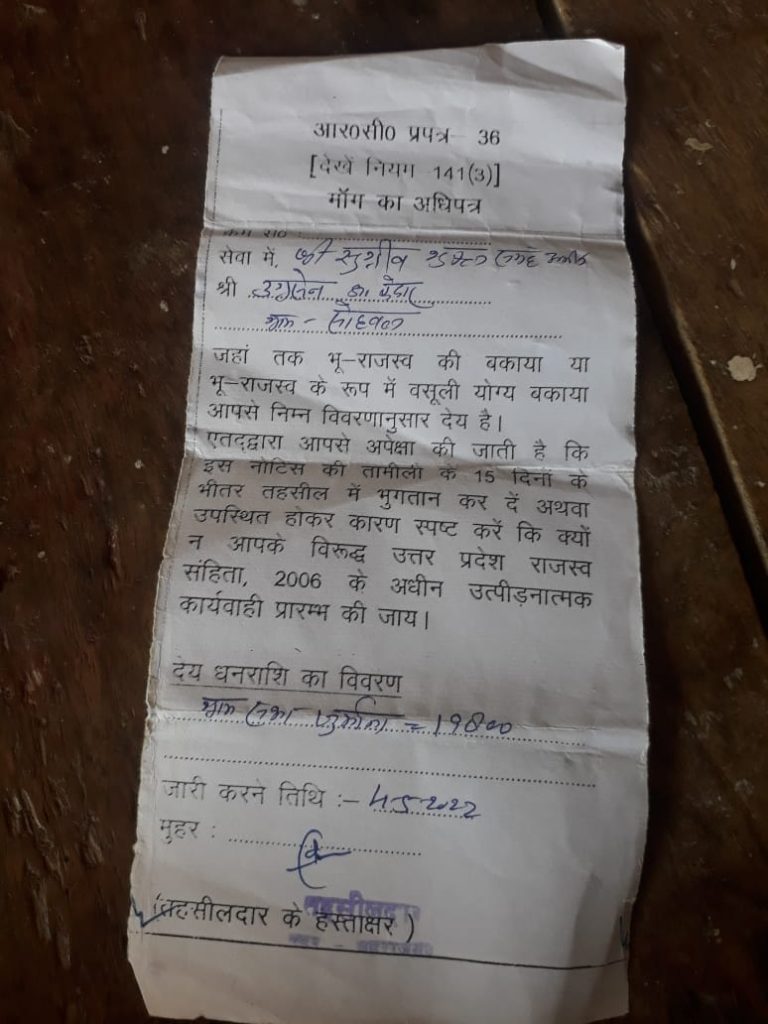 आर0सी0 प्रपत्र– 36
[देखें नियम 141(3)]
माँग का अधिपत्र
सेवा में, श्री सुग्रीव
श्री उग्रसेन का बेदार
ग्राम -
जहां तक भू–राजस्व की बकाया या
भू–राजस्व के रूप में वसूली योग्य बकाया
आपसे निम्न विवरणानुसार देय है।
एतद्द्वारा आपसे अपेक्षा की जाती है कि
इस नोटिस की तामीली के 15 दिनों के
भीतर तहसील में भुगतान कर दें अथवा
उपस्थित होकर कारण स्पष्ट करें कि क्यों
न आपके विरूद्ध उत्तर प्रदेश राजस्व
संहिता, 2006 के अधीन उत्पीड़नात्मक
कार्यवाही प्रारम्भ की जाय।
देय धनराशि का विवरण
जुर्माना = 19800
जारी करने तिथि :– 4-5-2022
मुहर :
तहसीलदार
(तहसीलदार के हस्ताक्षर )